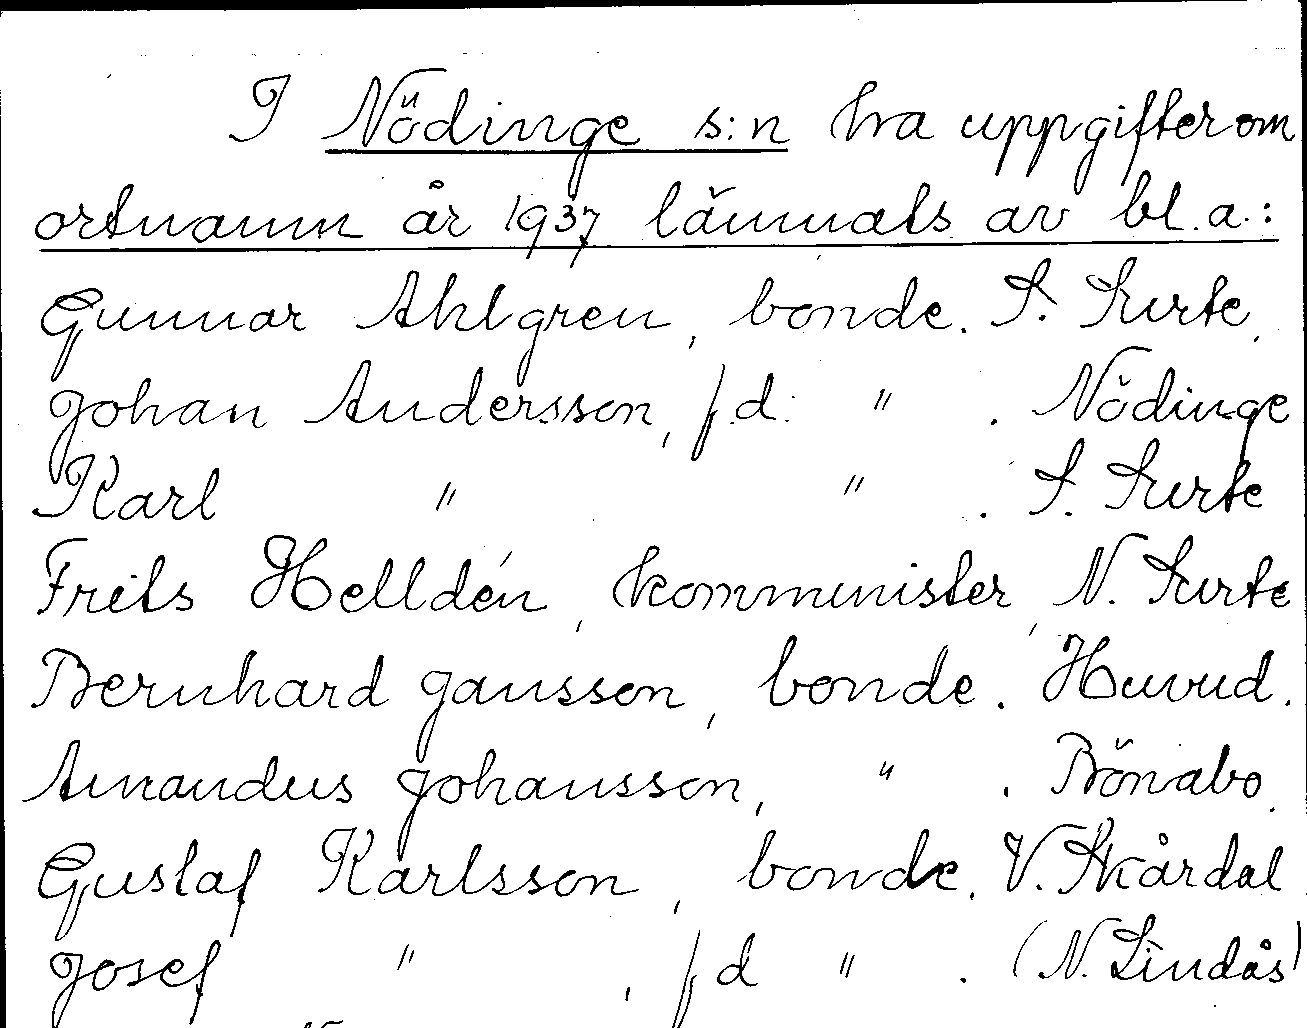 I Nödinge s:n ha uppgifter om
ortnamn år 1937 lämnats av bl.a.:
Gunnar Ahlgren, bonde. S. Surte.
Johan Andersson, f.d. " . Nödinge
Karl " " . S. Surte
Frits Helldén, komminister, N. Surte
Bernhard Jansson, bonde. Huvud.
Amandus Johansson, " . Bönabo.
Gustaf Karlsson, bonde. V. Skårdal
Josef " , f d " . (N. Lindås)